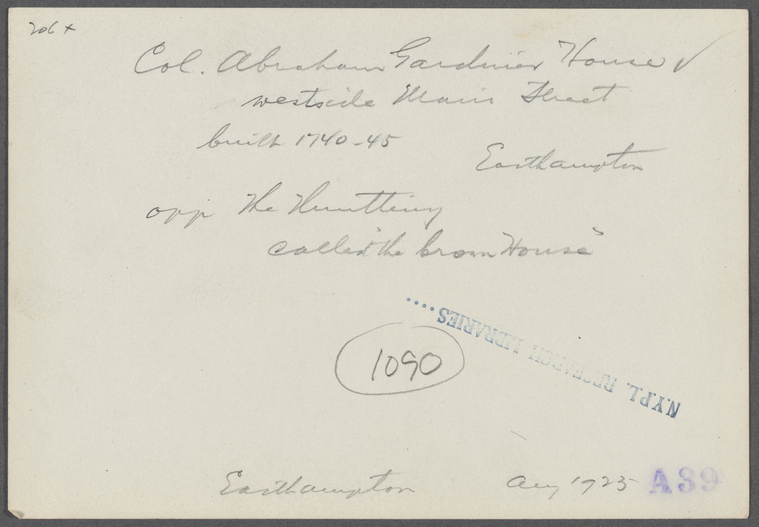 206 x
Col. Abraham Gardiner House ✓
westside Main Street
built 1740-45
Easthampton
opp The Huntting
called "the brown House"
N.Y.P.L. RESEARCH LIBRARIES ....
1090
Easthampton Aug 1925 A39